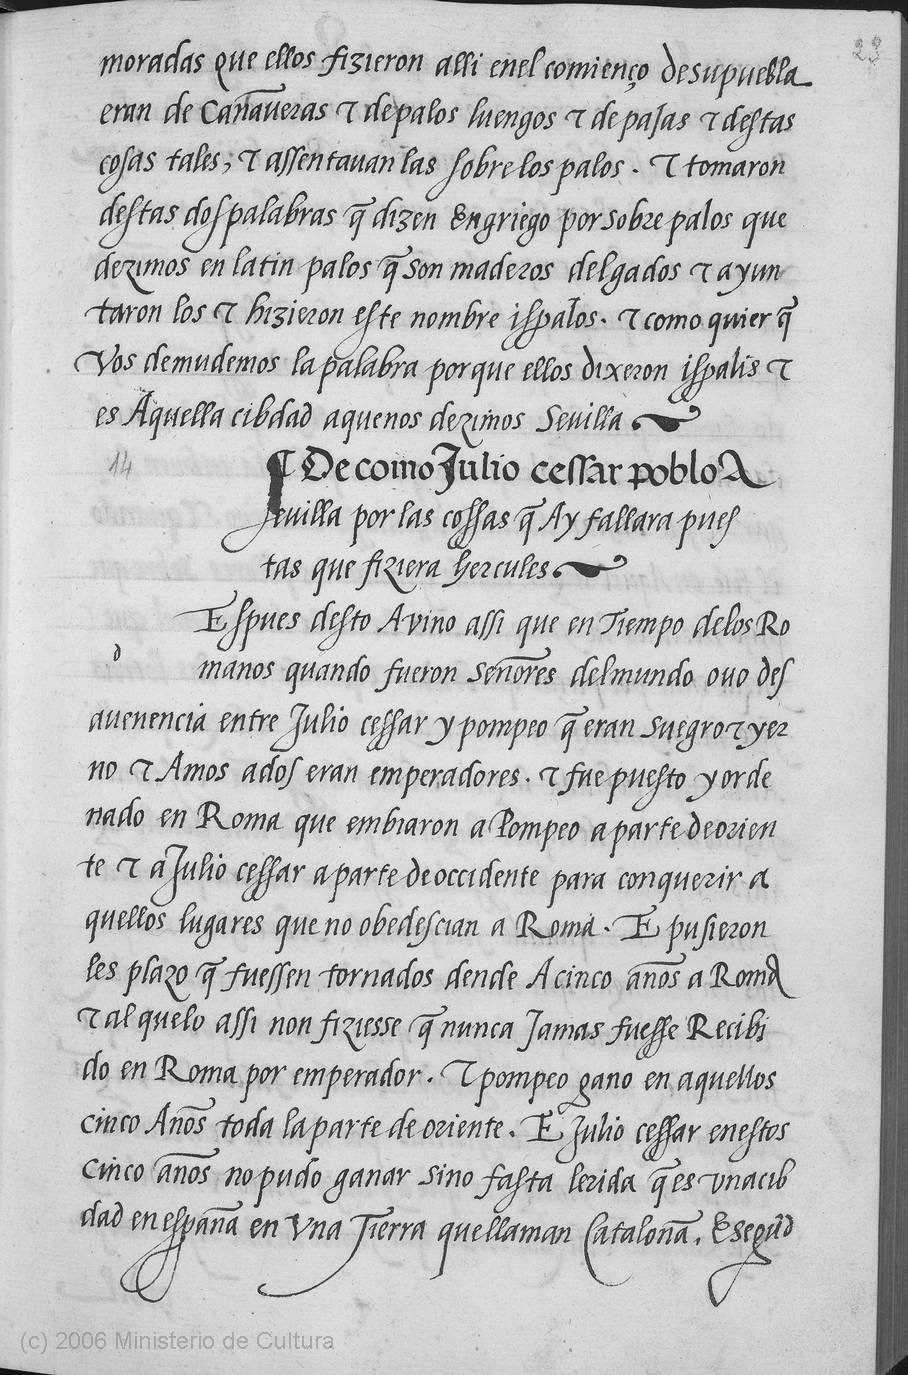 23
moradas que ellos fizieron alli enel comienço desupuebla
eran de Cañaueras τ depalos luengos τ de pajas τ destas
cosas tales, τ assentauan las sobre los palos. τ tomaron
destas dos palabras q̄ dizen Engriego por sobre palos que
dezimos en latin palos q̄ son maderos delgados τ ayun
taron los τ hizieron este nombre ispalos. τ como quier q̄
Vos demudemos la palabra porque ellos dixeron ispalis τ
es Aquella cibdad aquenos dezimos Sevilla
14
¶ De como Julio cessar poblo A
sevilla por las cossas q̄ Ay fallara pues
tas que fiziera hercules
d
Espues desto Avino assi que en Tiempo delos Ro
manos quando fueron señores del mundo ouo des
auenencia entre Julio cessar y pompeo q̄ eran suegro τ yer
no τ Amos ados eran emperadores. τ fue puesto y orde
nado en Roma que embiaron a Pompeo a parte de orien
te τ a Julio cessar a parte de occidente para conquerir a
quellos lugares que no obedescian a Roma. E pusieron
les plazo q̄ fuessen tornados dende A cinco años a Roma
τ al quelo assi non fiziesse q̄ nunca Jamas fuesse Recibi
do en Roma por emperador. τ pompeo gano en aquellos
cinco Años toda la parte de oriente. E Julio cessar enestos
cinco años no pudo ganar sino fasta lerida q̄ es vna cib
dad en españa en Vna Tierra que llaman Cataloña. E segūd
(c) 2006 Ministerio de Cultura